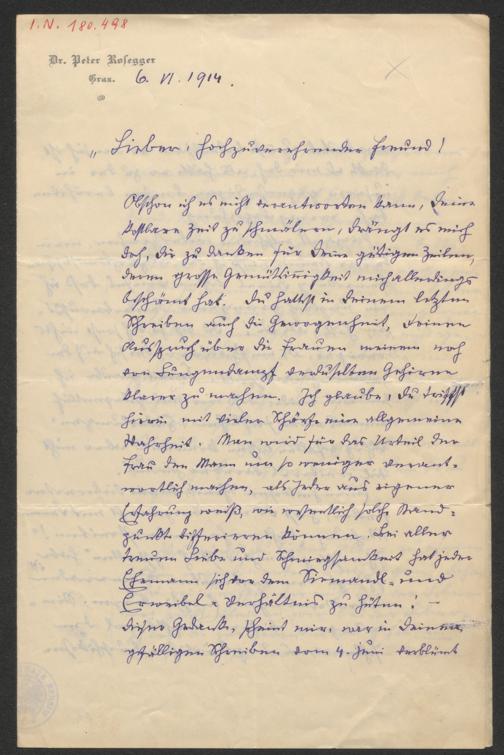 I.N. 180.498
Dr. Peter Rosegger
Graz.
6. VI. 1914.
„Lieber, hochzuverehrender Freund!
Obschon ich es nicht verantworten kann, Deine
kostbare Zeit zu schmälern, drängt es mich
doch, Dir zu danken für Deine gütigen Zeilen,
deren grosse Gemütsinnigkeit mich allerdings
beschämt hat. Du hattest in Deinem letzten
Schreiben auch die Gewogenheit, Deinen
Ausspruch über die Frauen meinem noch
von Lungendampf verduselten Gehirne
klarer zu machen. Ich glaube, Du triffst
hierin mit vieler Schärfe eine allgemeine
Wahrheit. Man wird für das Urteil der
Frau den Mann um so weniger verant-
wortlich machen, als Jeder aus eigener
Erfahrung weiß, wie wesentlich solche Stand-
punkte differieren können. Bei aller
treuen Liebe und Schmiegsamkeit hat jeder
Ehemann sich vor dem Siemandl- und
Erweibel-Verhältnis zu hüten! –
Dieser Gedanke, scheint mir, war in Deinem
gefälligen Schreiben vom 4. Juni verblümt